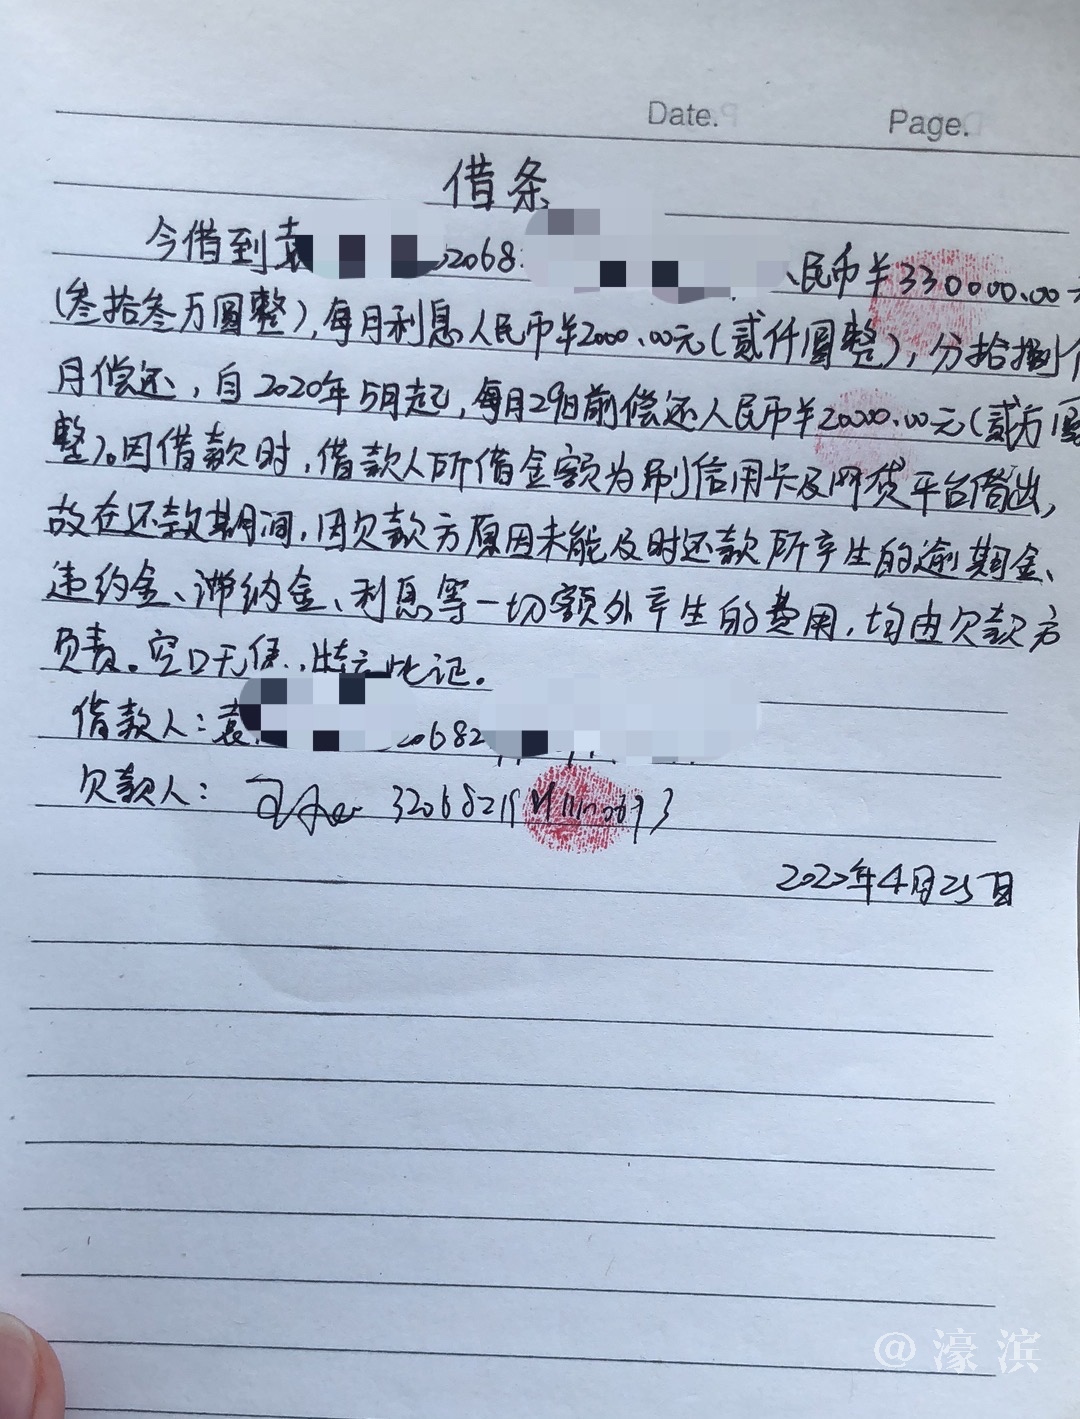 Date.
Page.
借条
今借到袁 2068 民币￥330000.00
(叁拾叁万圆整),每月利息人民币￥2000.00元(贰仟圆整),分拾捌
月偿还,自2020年5月起,每月29日前偿还人民币￥20000.00元(贰万圆
整)。因借款时,借款人所借金额为刷信用卡及网贷平台借出,
故在还款期间,因欠款方原因未能及时还款所产生的逾期金、
违约金、滞纳金、利息等一切额外产生的费用,均由欠款方
负责。空口无凭,特立此证。
借款人:袁 20682
欠款人:
2020年4月25日
@濠滨